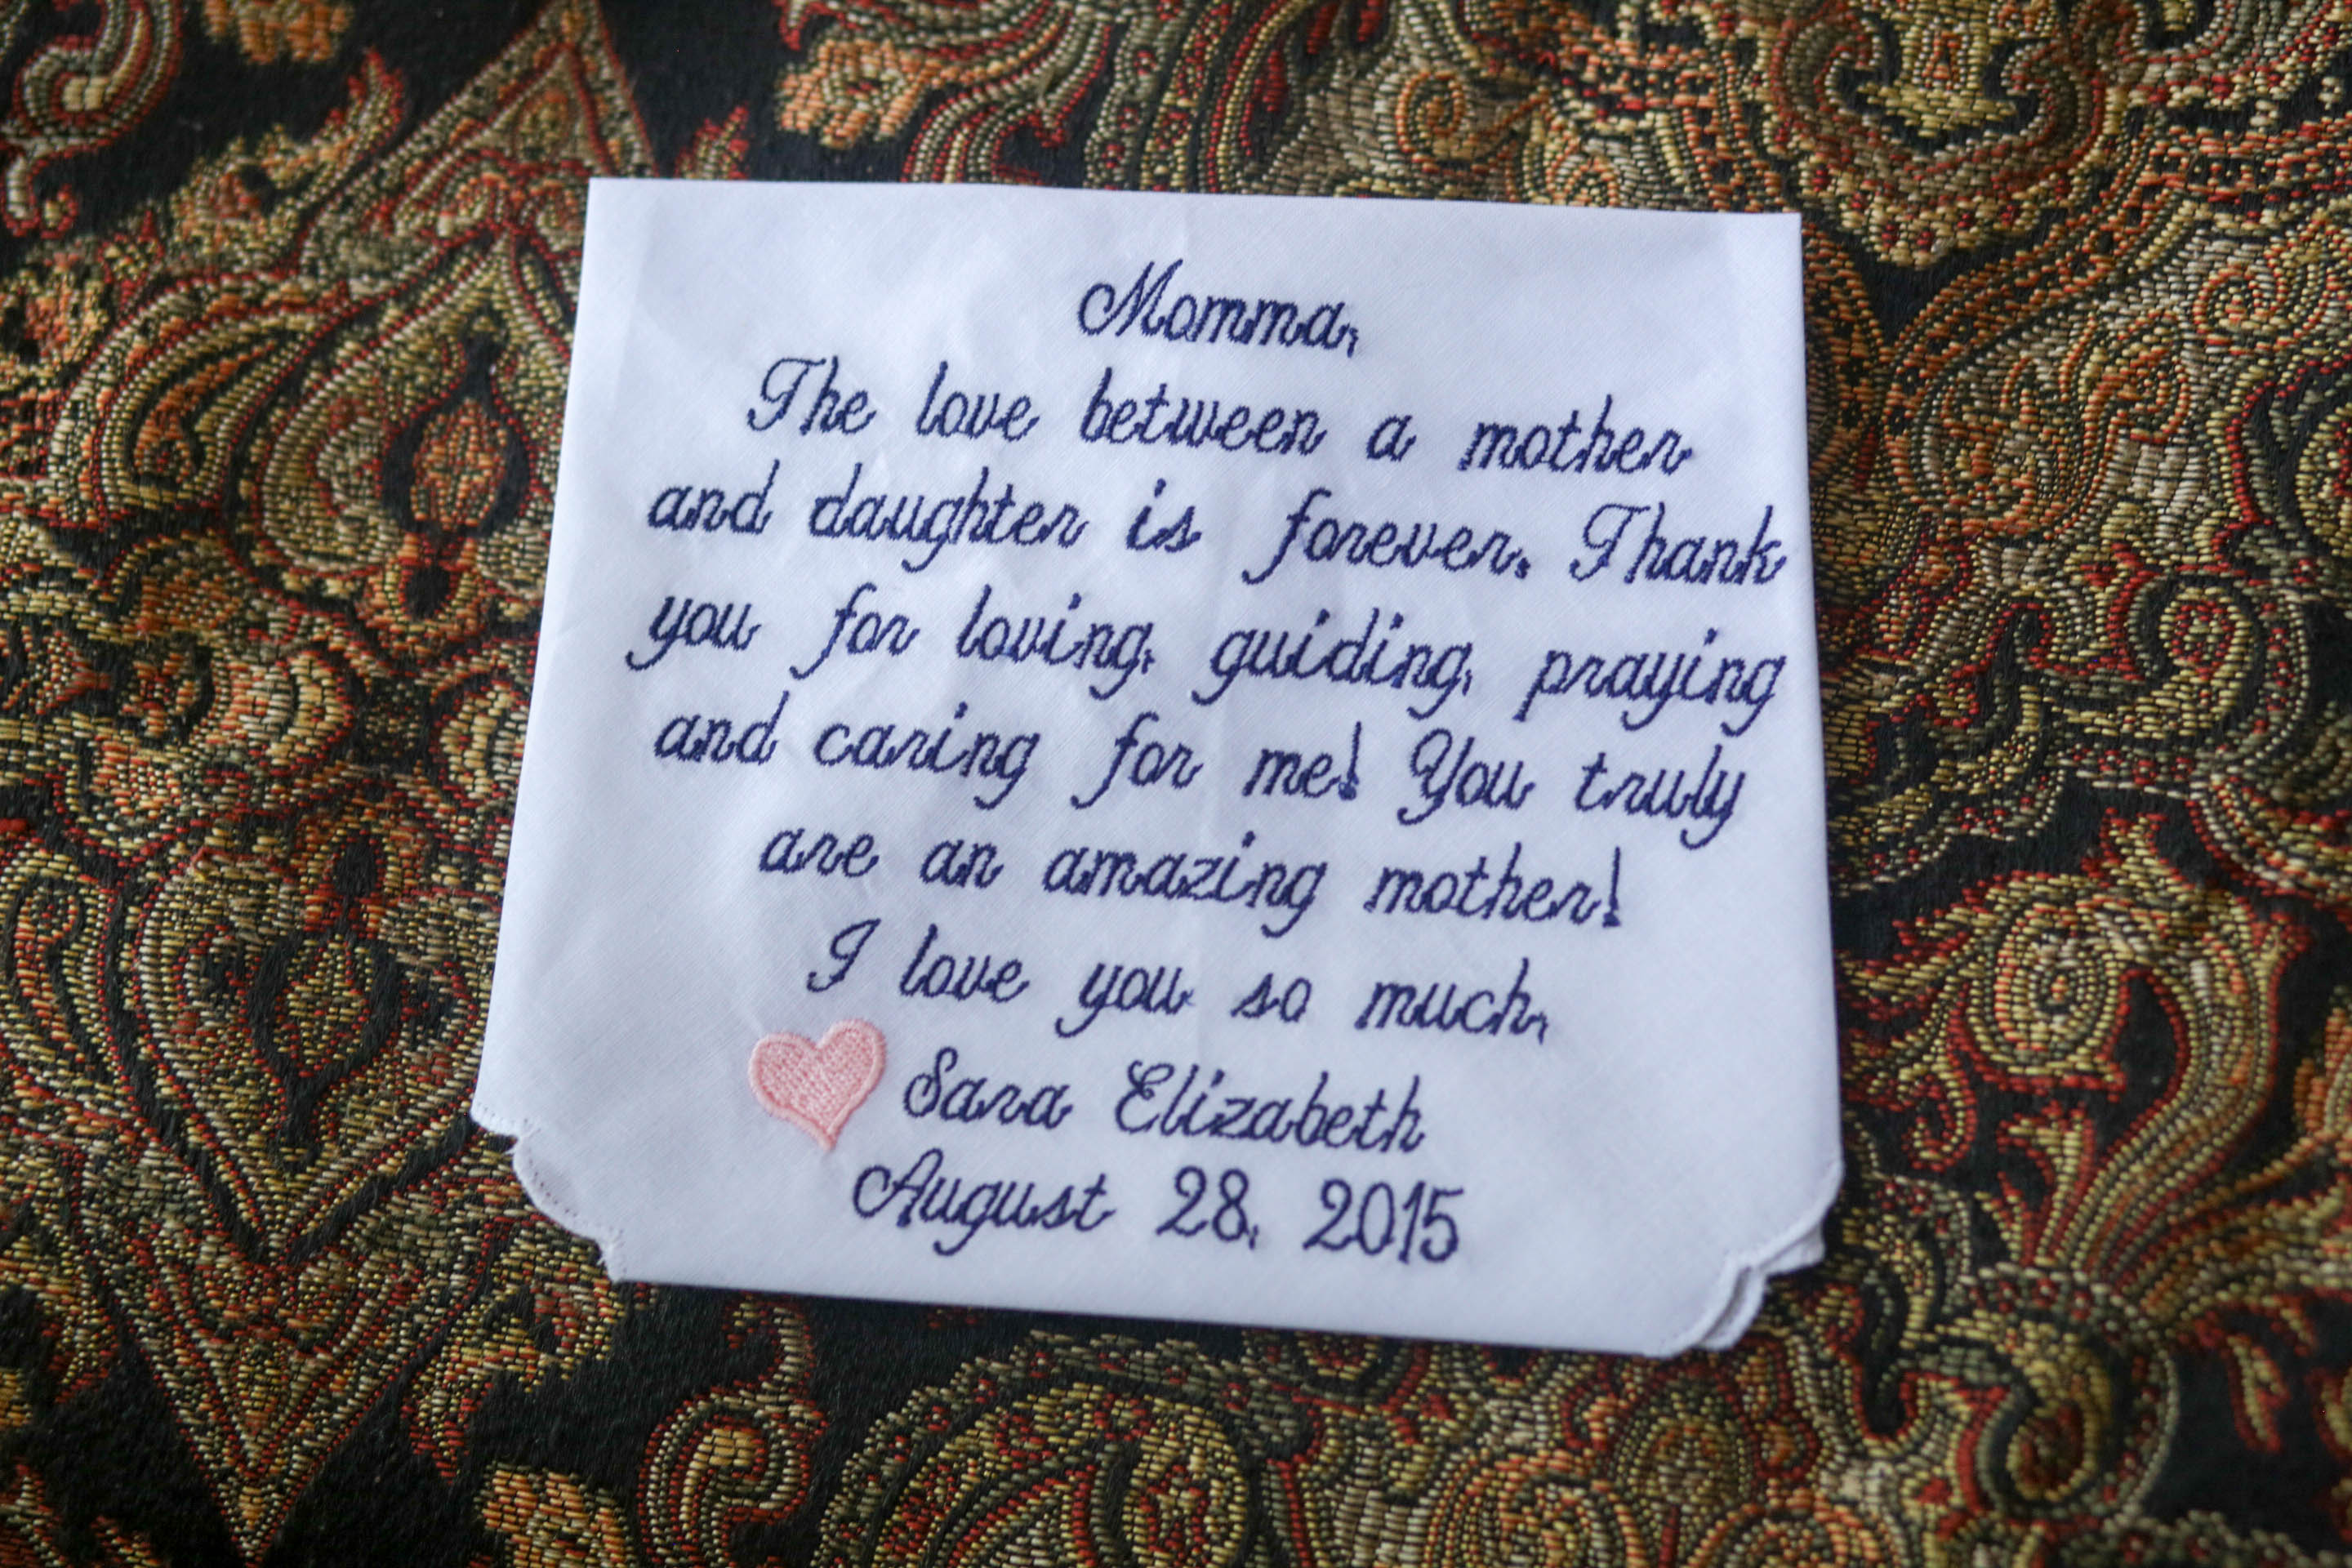 Momma,
The love between a mother
and daughter is forever. Thank
you for loving, guiding, praying
and caring for me! You truly
are an amazing mother!
I love you so much,
Sara Elizabeth
August 28, 2015